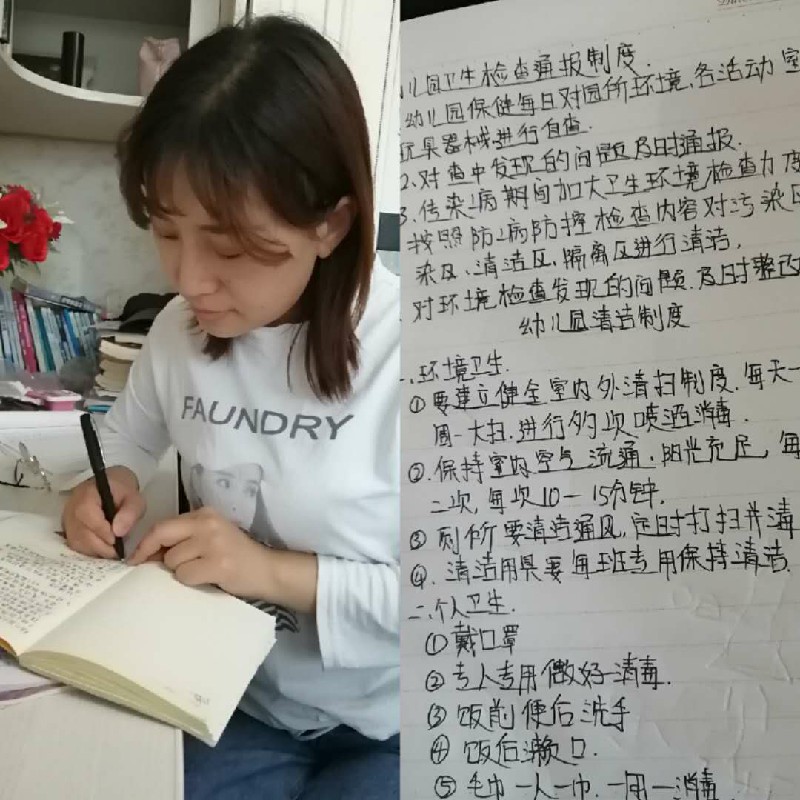 FAUNDRY
儿园卫生检查通报制度.
幼儿园保健每日对园所环境、各活动室
玩具器械进行自查.
2、对查中发现的问题及时通报.
3、传染病期间加大卫生环境检查力度
按照防病防控检查内容对污染区
染区、清洁区、隔离区进行清洁,
对环境检查发现的问题.及时整改
幼儿园清洁制度
一、环境卫生.
①要建立健全室内外清扫制度.每天一
周一大扫.进行的次喷洒消毒.
②.保持室内空气流通.阳光充足,每
二次,每次10-15分钟.
③厕所要清洁通风,定时打扫并消
④.清洁用具要每班专用保持清洁.
二、个人卫生.
①戴口罩
②专人专用做好消毒.
③饭前便后洗手
④饭后漱口.
⑤毛巾一人一巾.一用一消毒